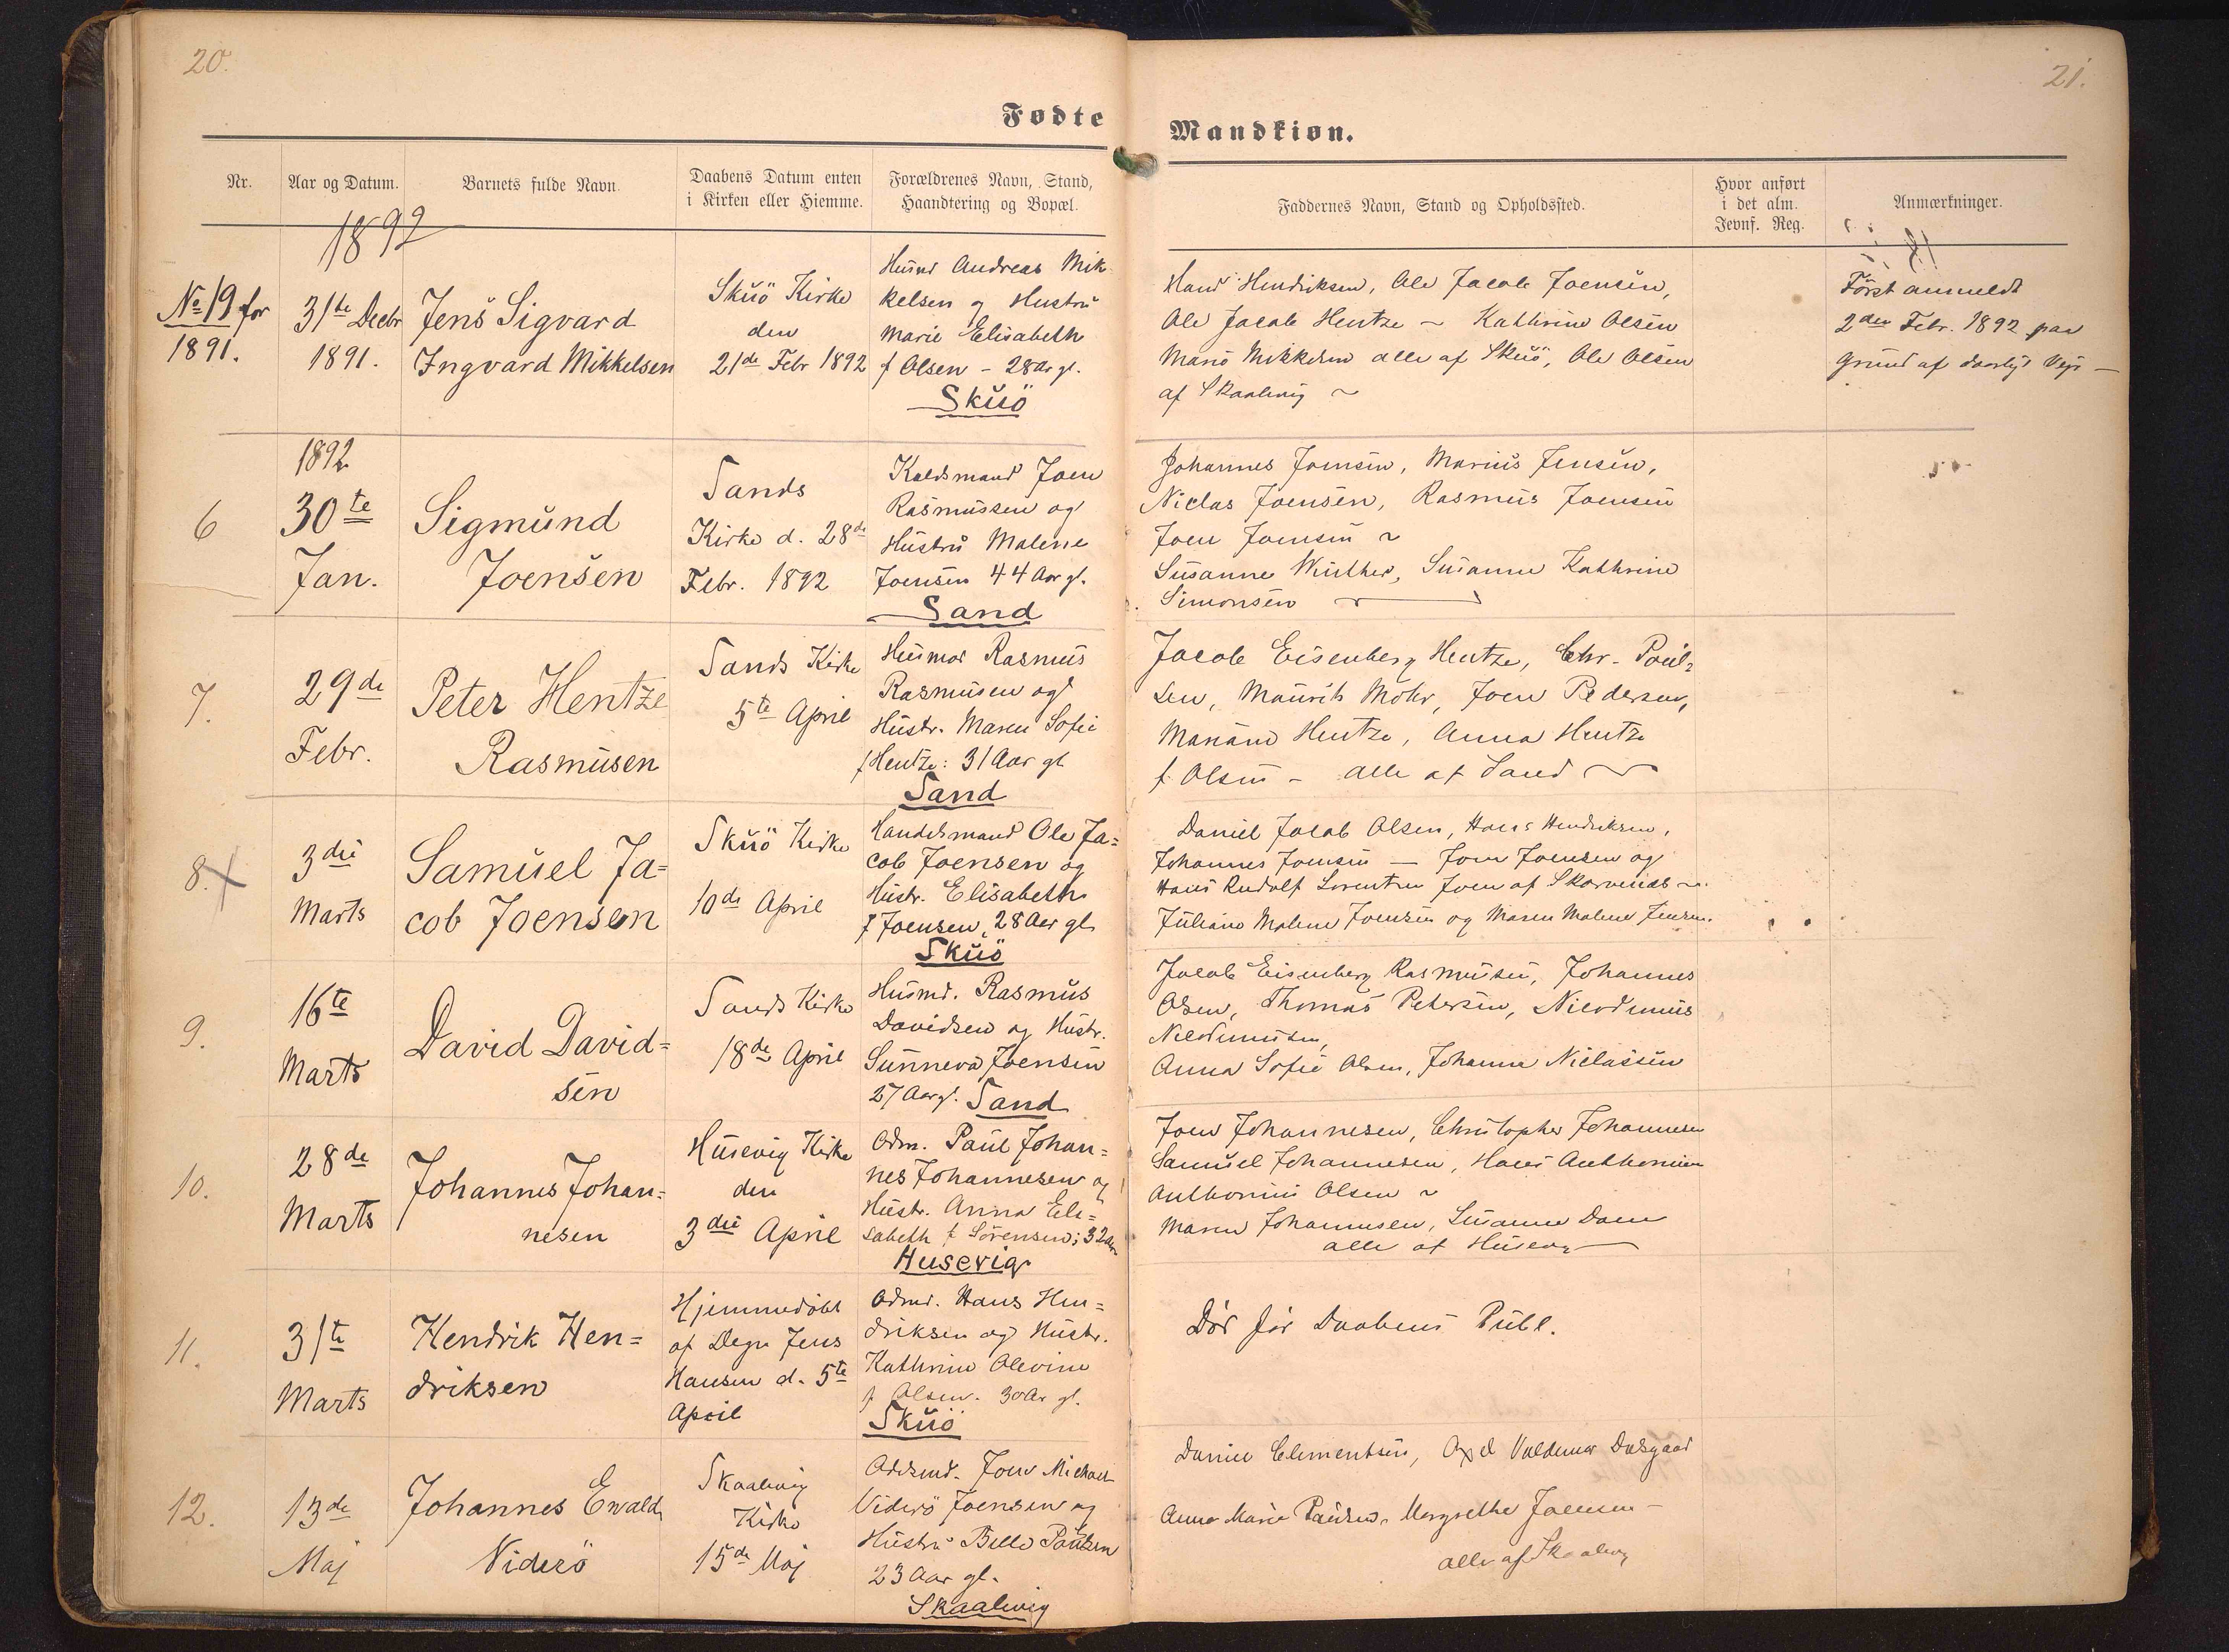 20.
Fødte
Nr.
Aar og Datum.
Barnets fulde Navn.
Daabens Datum enten
i Kirken eller Hiemme.
Forældrenes Navn, Stand,
Haandtering og Bopæl.
1892
No 19 for
1891.
31te Decbr
1891.
Jens Sigvard
Ingvard Mikkelsen
Skuö Kirke
den
21de Febr 1892
Husmd Andreas Mik
kelsen og Hustru
Marie Elisabeth
f Olsen - 28 Ar gl.
Skuö
6
1892
30te
Jan.
Sigmund
Joensen
Sands
Kirke d. 28de
Febr. 1892
Joen
Rasmussen og
Hustru Malene
Joensen 44 Aar gl.
Sand
7.
29de
Febr.
Peter Hentze
Rasmusen
Sands Kirke
5te April
Husmd Rasmus
Rasmusen og
Hustr. Maren Sofie
f Hentze: 31 Aar gl
Sand
8.
3die
Marts
Samuel Ja=
cob Joensen
Skuö Kirke
10de April
Handelsmand Ole Ja=
cob Joensen og
Hustr. Elisabeth
f Joensen, 28 Aar gl
Skuö
9.
16te
Marts
David David=
sen
Sands Kirke
18de April
Husmd. Rasmus
Davidsen og Hustr.
Sunneva Joensen
27 Aar gl. Sand
10.
28de
Marts
Johannes Johan=
nesen
Husevig Kirke
den
3die April
Odm. Paul Johan=
nes Johannesen og
Hustr. Anna Eli=
sabeth f Sörensen; 32 Aar
Husevig
11.
31te
Marts
Hendrik Hen=
driksen
Hjemmedöbt
af Degn Jens
Hansen d. 5te
April
Odmd. Hans Hen=
driksen og Hustr.
Kathrine Olevine
f Olsen. 30 Ar gl.
Skuö
12.
13de
Maj
Johannes Ewald
Viderö
Skaalevig
Kirke
15de Maj
Joen Michael
Viderö Joensen og
Hustru Bille Poulsen
23 Aar gl.
Skaalevig
21.
Mandkiøn.
Faddernes Navn, Stand og Opholdssted.
Hvor anført
i det alm.
Jevnf. Reg.
Anmærkninger.
Hans Hendriksen, Ole Jacob Joensen,
Ole Jacob Hentze - Kathrine Olsen
Marie Mikkelsen alle af Skuö, Ole Olsen
af Skaalevig
Först anmeldt
2den Febr. 1892 paa
Grund af daarligt Vejr -
Johannes Joensen, Marius Jensen,
Niclas Joensen, Rasmus Joensen
Joen Joensen
Susanne Winther, Susanne Kathrine
Simonsen
Jacob Eisenberg Hentze, Chr. Poul=
sen, Maurits Mohr, Joen Pedersen,
Mariane Hentze, Anna Hentze
f. Olsen - alle af Sand
Daniel Jacob Olsen, Hans Hendriksen,
Johannes Joensen - Joen Joensen og
Hans Rudolf Lorentsen Joen af Skarvenæs
Juliane Malene Joensen og Maren Malene Jensen.
Jacob Eisenberg Rasmusen, Johannes
Olsen, Thomas Petersen, Nicodemus
Nicodemusen,
Anna Sofie Olsen, Johanne Niclassen
Joen Johannesen, Christopher Johannesen
Samuel Johannesen, Hans Anthonius
Anthonius Olsen
Maren Johannesen, Susanne Dam
alle af Husevig
Död för Daabens Publ.
Daniel Clementsen, Axel Valdemar Dalsgaard
Anna Marie Paulsen, Margrethe Joensen -
alle af Skaalevig